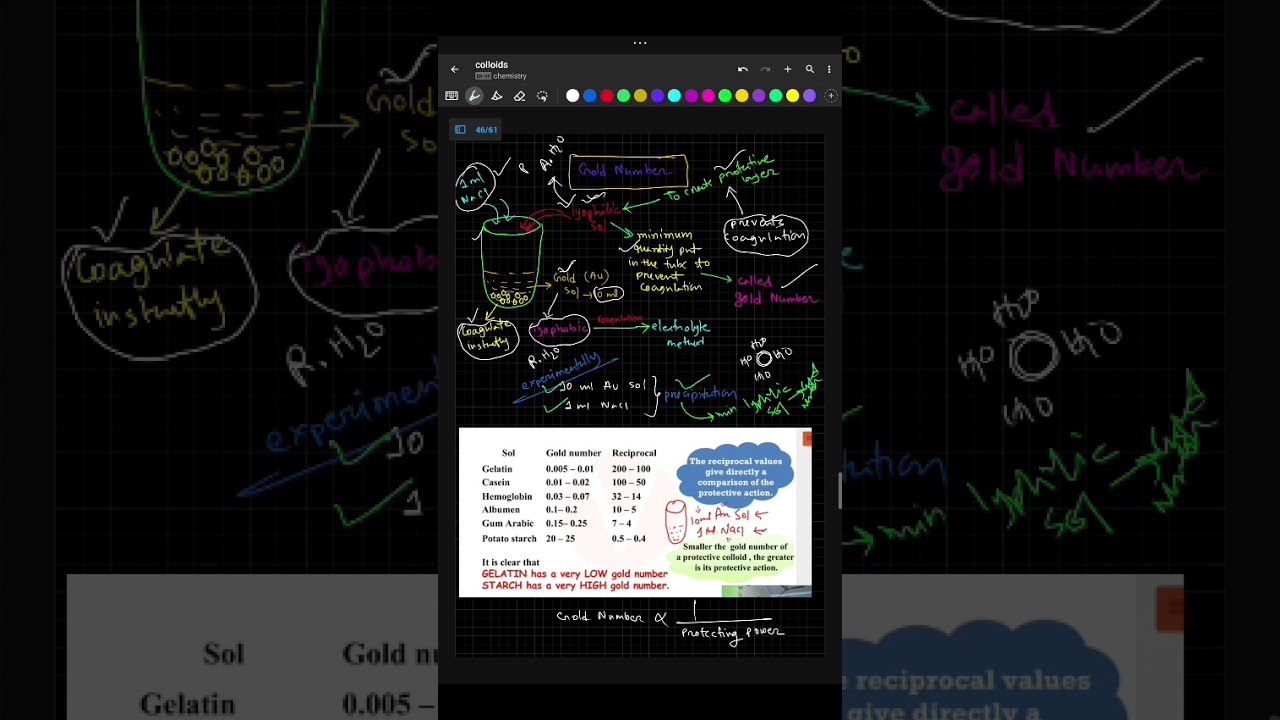 colloids
chemistry
46/61
Gold Number
1 ml
NaCl
R. H2O
lyophilic
sol
To create protective
layer
prevents
coagulation
minimum
quantity put
in the tube sto
prevent
coagulation
called
gold Number
Gold (Au)
sol → 0 ml
coagulate
instantly
lyophobic
coagulation
electrolyte
method
R. H2O
experimentally
10 ml Au sol
1 ml NaCl
precipitation
min lyophilic
sol
H2O
H2O
H2O
H2O
Sol Gold number Reciprocal
Gelatin 0.005 – 0.01 200 – 100
Casein 0.01 – 0.02 100 – 50
Hemoglobin 0.03 – 0.07 32 – 14
Albumen 0.1– 0.2 10 – 5
Gum Arabic 0.15– 0.25 7 – 4
Potato starch 20 – 25 0.5 – 0.4
The reciprocal values
give directly a
comparison of the
protective action.
10ml Au Sol
1M NaCl
Smaller the gold number of
a protective colloid , the greater
is its protective action.
It is clear that
GELATIN has a very LOW gold number
STARCH has a very HIGH gold number.
Gold Number ∝ 1
Protecting power